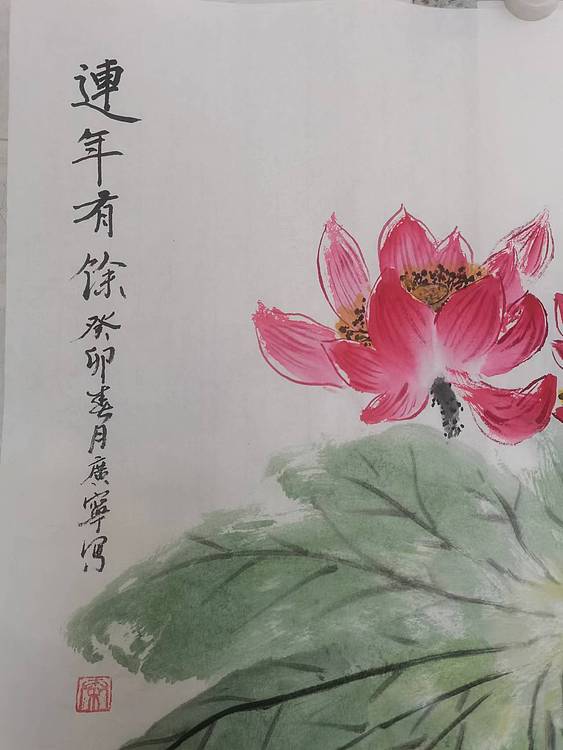 連年有餘癸卯春月廣寧寫